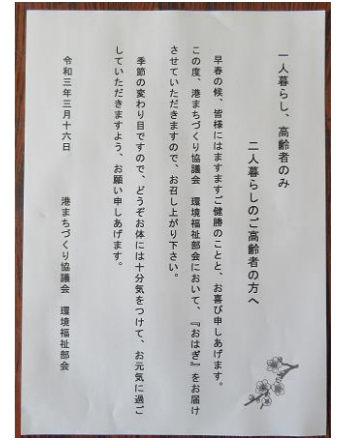 一人暮らし、高齢者のみ
二人暮らしのご高齢者の方へ
早春の候、皆様にはますますご健勝のことと、お喜び申しあげます。
この度、港まちづくり協議会　環境福祉部会において、『おはぎ』をお届け
させていただきますので、お召し上がり下さい。
季節の変わり目ですので、どうぞお体には十分気をつけて、お元気に過ご
していただきますよう、お願い申しあげます。
令和三年三月十六日
港まちづくり協議会　環境福祉部会